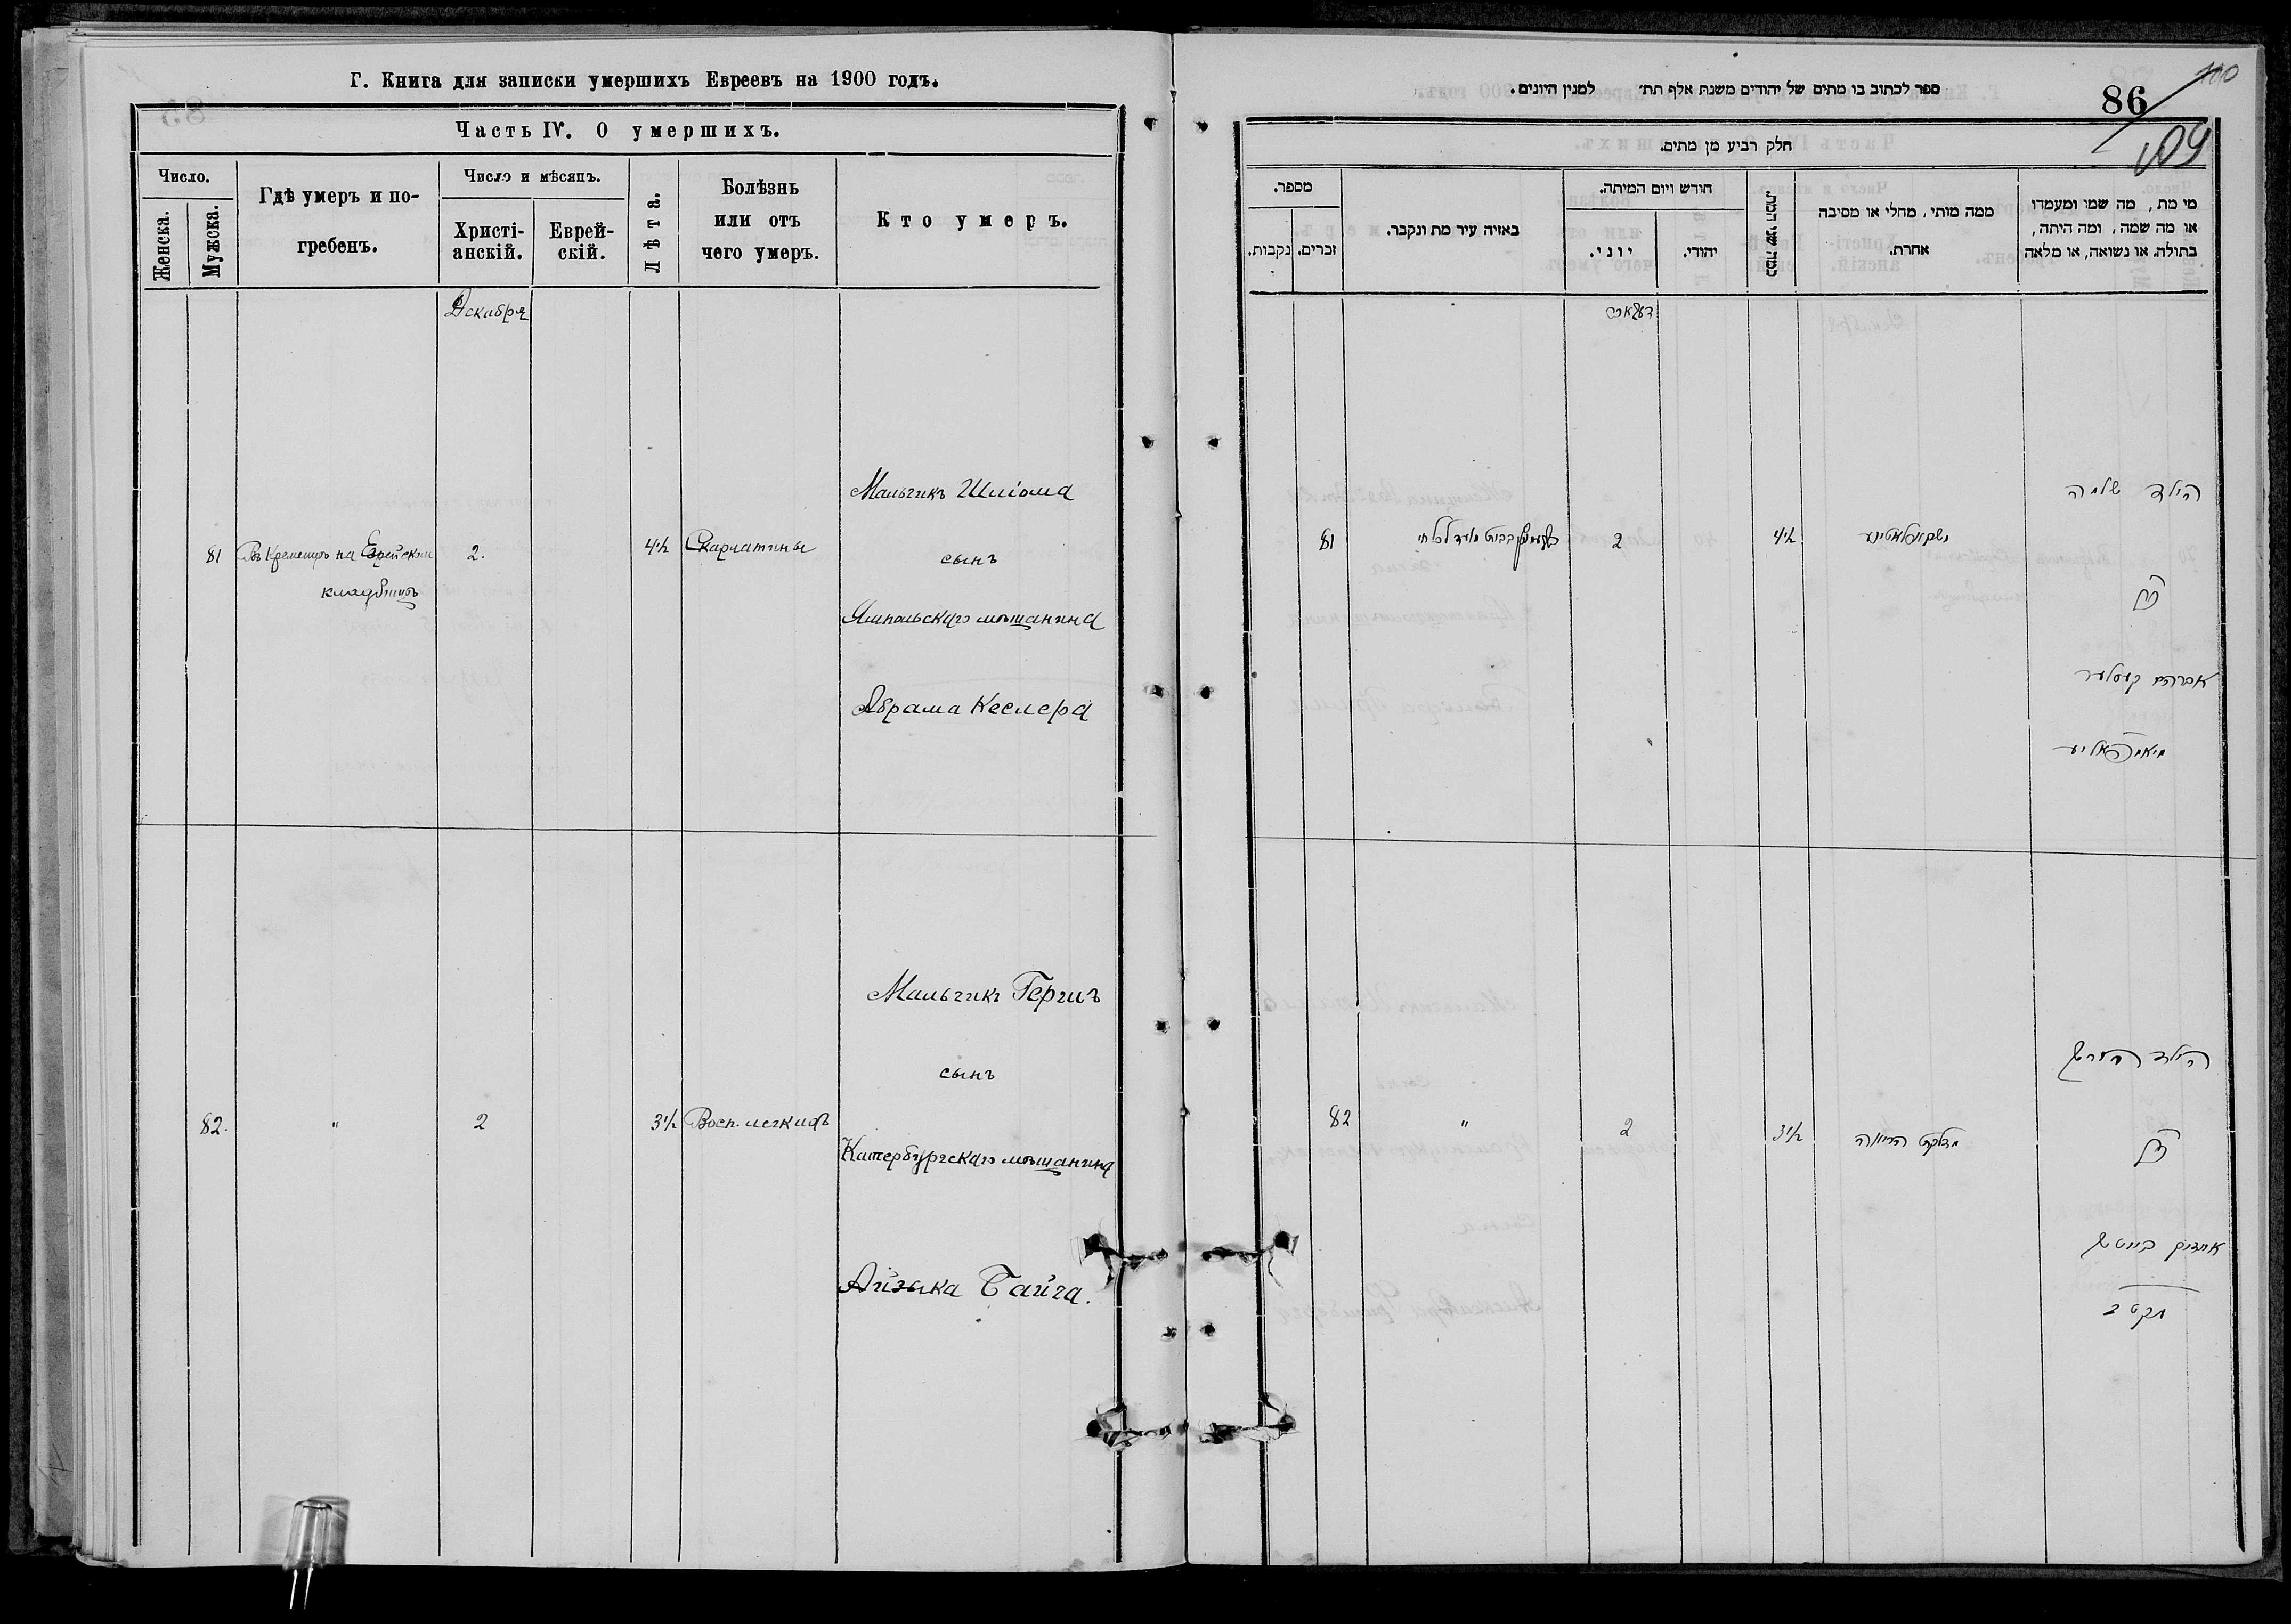 Г. Книга для записки умершихъ Евреевъ на 1900 годъ.
Часть IV. О умершихъ.
Число.
Женска.
Мужска.
Гдѣ умеръ и по-
гребенъ.
Число и мѣсяцъ.
Христі-
анскій.
Еврей-
скій.
Лѣта.
Болѣзнь
или отъ
чего умеръ.
Кто умеръ.
Декабря
81
Въ Кременцѣ на Еврейском
кладбищѣ
2.
4½
Скарлатины
Мальчикъ Шліома
сынъ
Ямпольскаго мѣщанина
Абрама Кеслера
82.
"
2
3½
Восп. легкихъ
Мальчикъ Гершъ
сынъ
Катербургскаго мѣщанина
Айзыка Байча.
ספר לכתוב בו מתים של יהודים משנת אלף תת׳ למנין היונים.
86
100
109
חלק רביע מן מתים.
מספר.
זכרים.
נקבות.
באזיה עיר מת ונקבר.
חודש ויום המיתה.
יוני.
יהודי.
כמה שני המת.
ממה מותי, מחלי או מסיבה
אחרת.
מי מת, מה שמו ומעמדו
או מה שמה, ומה היתה,
בתולה, או נשואה, או מלאה
81
2
4½
הילד שלמה
בן
אברהם קעסלער
82
"
2
3½
דלקת הריאה
הילד הירש
בן
אייזיק